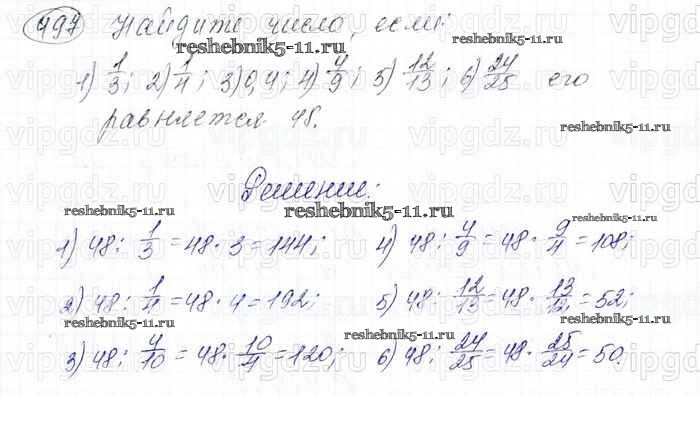 497 Найдите число, если:
reshebnik5-11.ru
1) 1/3; 2) 1/4; 3) 0,4; 4) 4/9; 5) 12/13; 6) 24/25 его
reshebnik5-11.ru
равняется 48.
reshebnik5-11.ru
Решение:
reshebnik5-11.ru
reshebnik5-11.ru
reshebnik5-11.ru
1) 48 : 1/3 = 48 · 3 = 144; 4) 48 : 4/9 = 48 · 9/4 = 108;
reshebnik5-11.ru
reshebnik5-11.ru
2) 48 : 1/4 = 48 · 4 = 192; 5) 48 : 12/13 = 48 · 13/12 = 52;
reshebnik5-11.ru
reshebnik5-11.ru
3) 48 : 4/10 = 48 · 10/4 = 120; 6) 48 : 24/25 = 48 · 25/24 = 50.